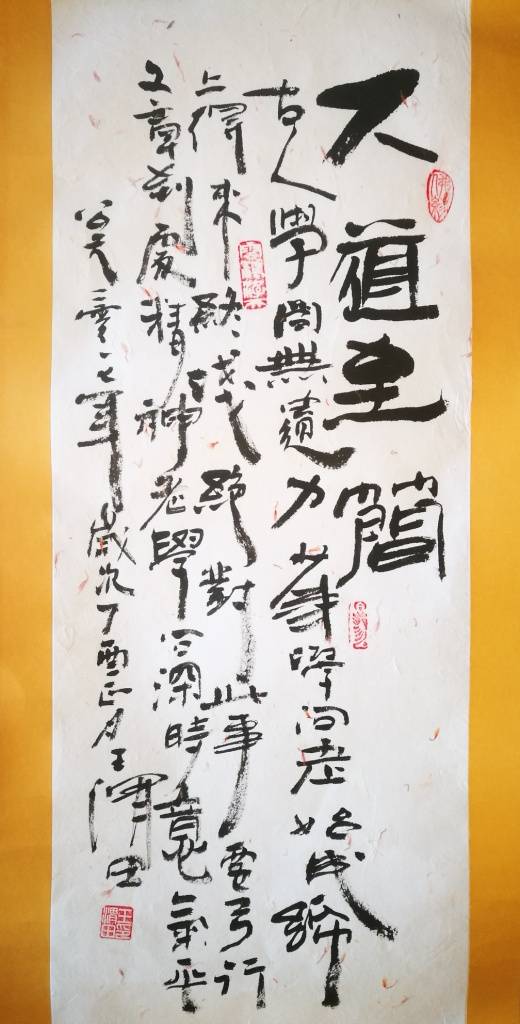 大道至簡
古人學問無遺力少年學問老始成紙
上得來終淺絕對此事要弓行
文章到處精神老學問深時意氣平
公元零一七年歲次丁酉正月王